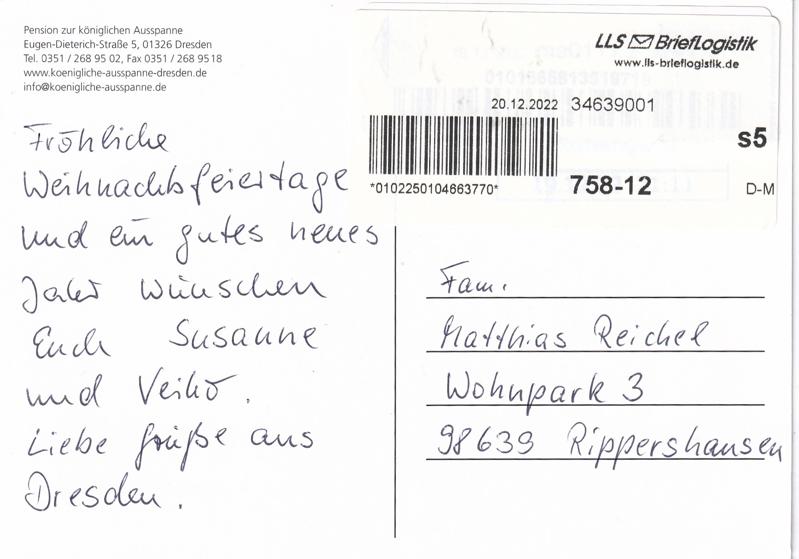 Pension zur königlichen Ausspanne
Eugen-Dieterich-Straße 5, 01326 Dresden
Tel. 0351 / 268 95 02, Fax 0351 / 268 9518
www.koenigliche-ausspanne-dresden.de
info@koenigliche-ausspanne.de
LLS BriefLogistik
www.lls-brieflogistik.de
20.12.2022 34639001
s5
*0102250104663770*
758-12
D-M
Fröhliche
Weihnachtsfeiertage
und ein gutes neues
Jahr wünschen
Euch Susanne
und Veiko.
Liebe Grüße aus
Dresden.
Fam.
Matthias Reichel
Wohnpark 3
98639 Rippershausen